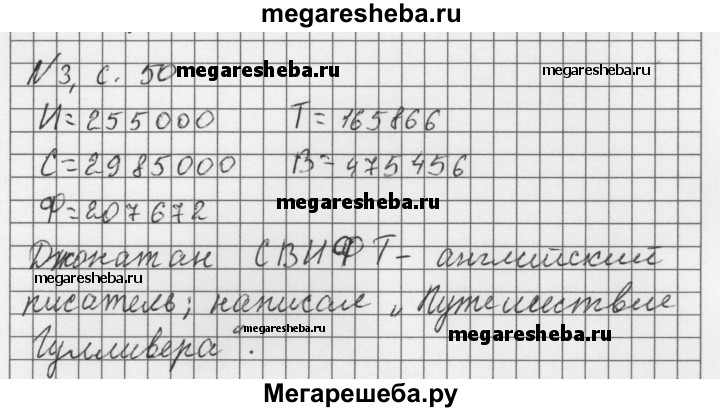 megaresheba.ru
N3, с. 50 megaresheba.ru megaresheba.ru
И=255000 Т=165866
С=2985000 В=475456
megaresheba.ru
Ф=207672
Джонатан СВИФТ- английский
megaresheba.ru
писатель; написал „Путешествие
megaresheba.ru megaresheba.ru
Гулливера .
Мегарешеба.ру